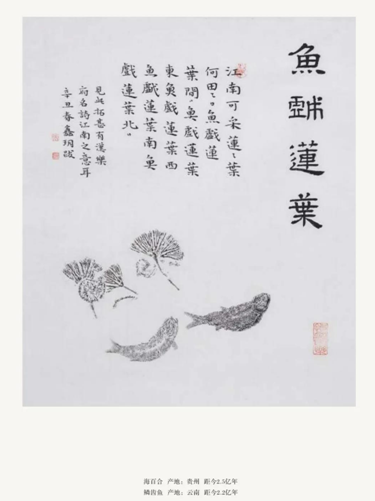 魚戲蓮葉
江南可采蓮〻葉
何田〻〻魚戲蓮
葉間〻魚戲蓮葉
東魚戲蓮葉西
魚戲蓮葉南魚
戲蓮葉北
見此拓有漢樂
府名詩江南之意耳
辛丑春跋
海百合 产地：贵州 距今2.5亿年
鳞齿鱼 产地：云南 距今2.2亿年